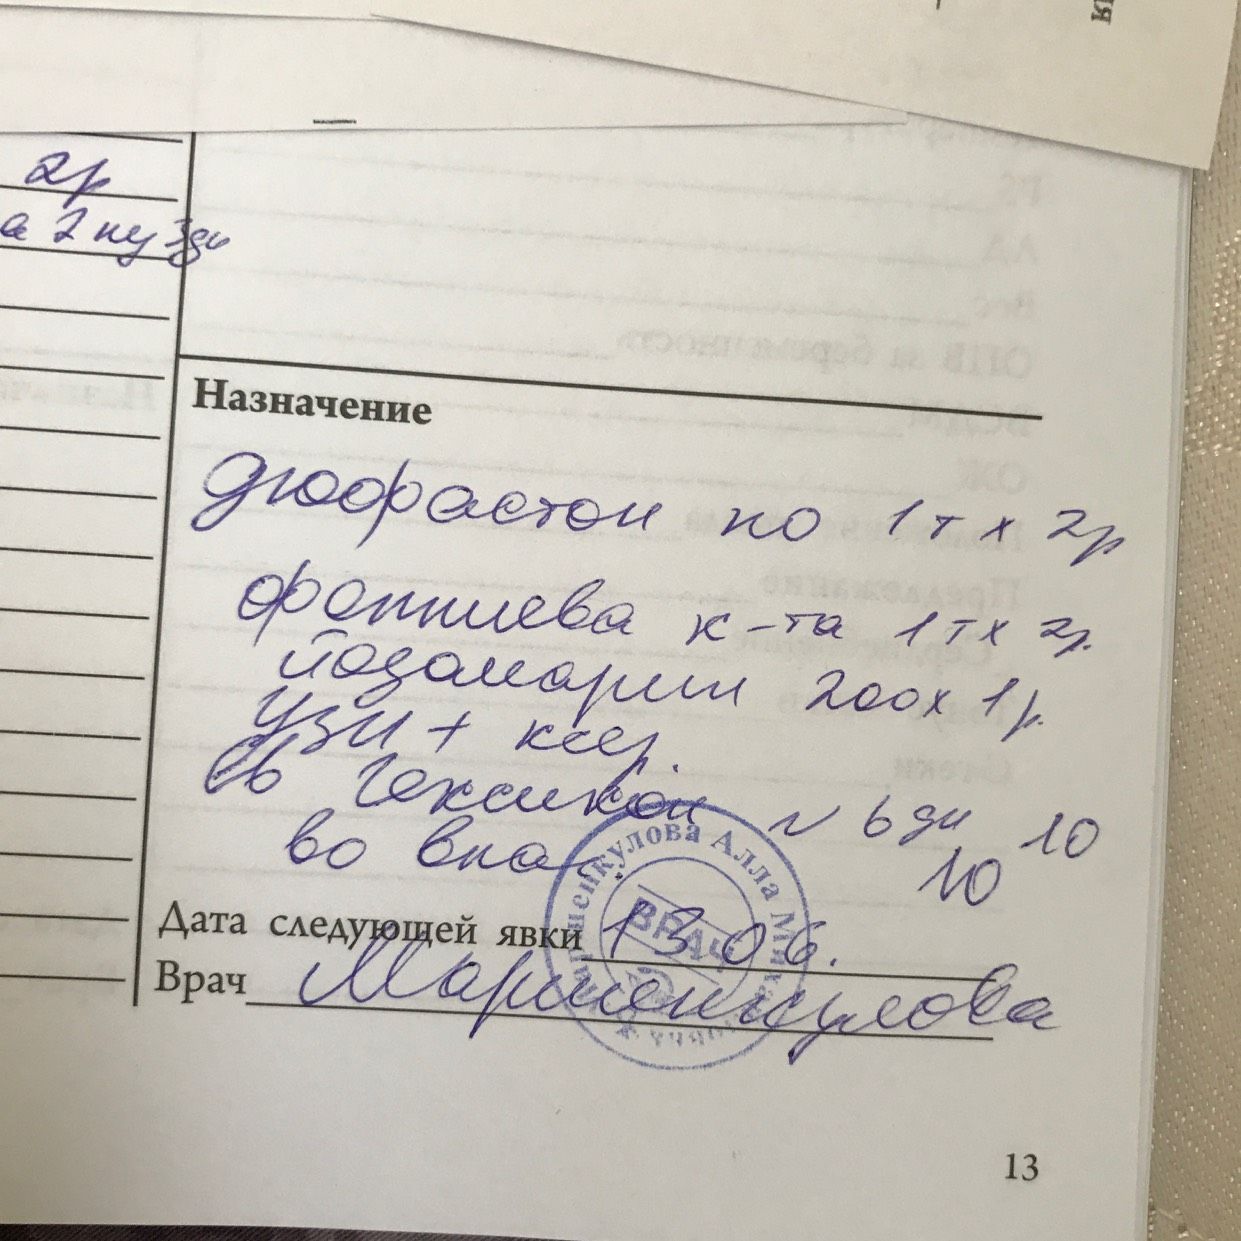 2р
а 2 ну 3 дн
Назначение
Дюфастон по 1т х 2р
фоллиева к-та 1т х 2р.
йодомарин 200 х 1р.
УЗИ +
св Гексикон N 6 дн 10
во влаг. 10
Дата следующей явки 13.06.
Врач Маршенкулова
шенкулова Алла Миха
ВРАЧ
13